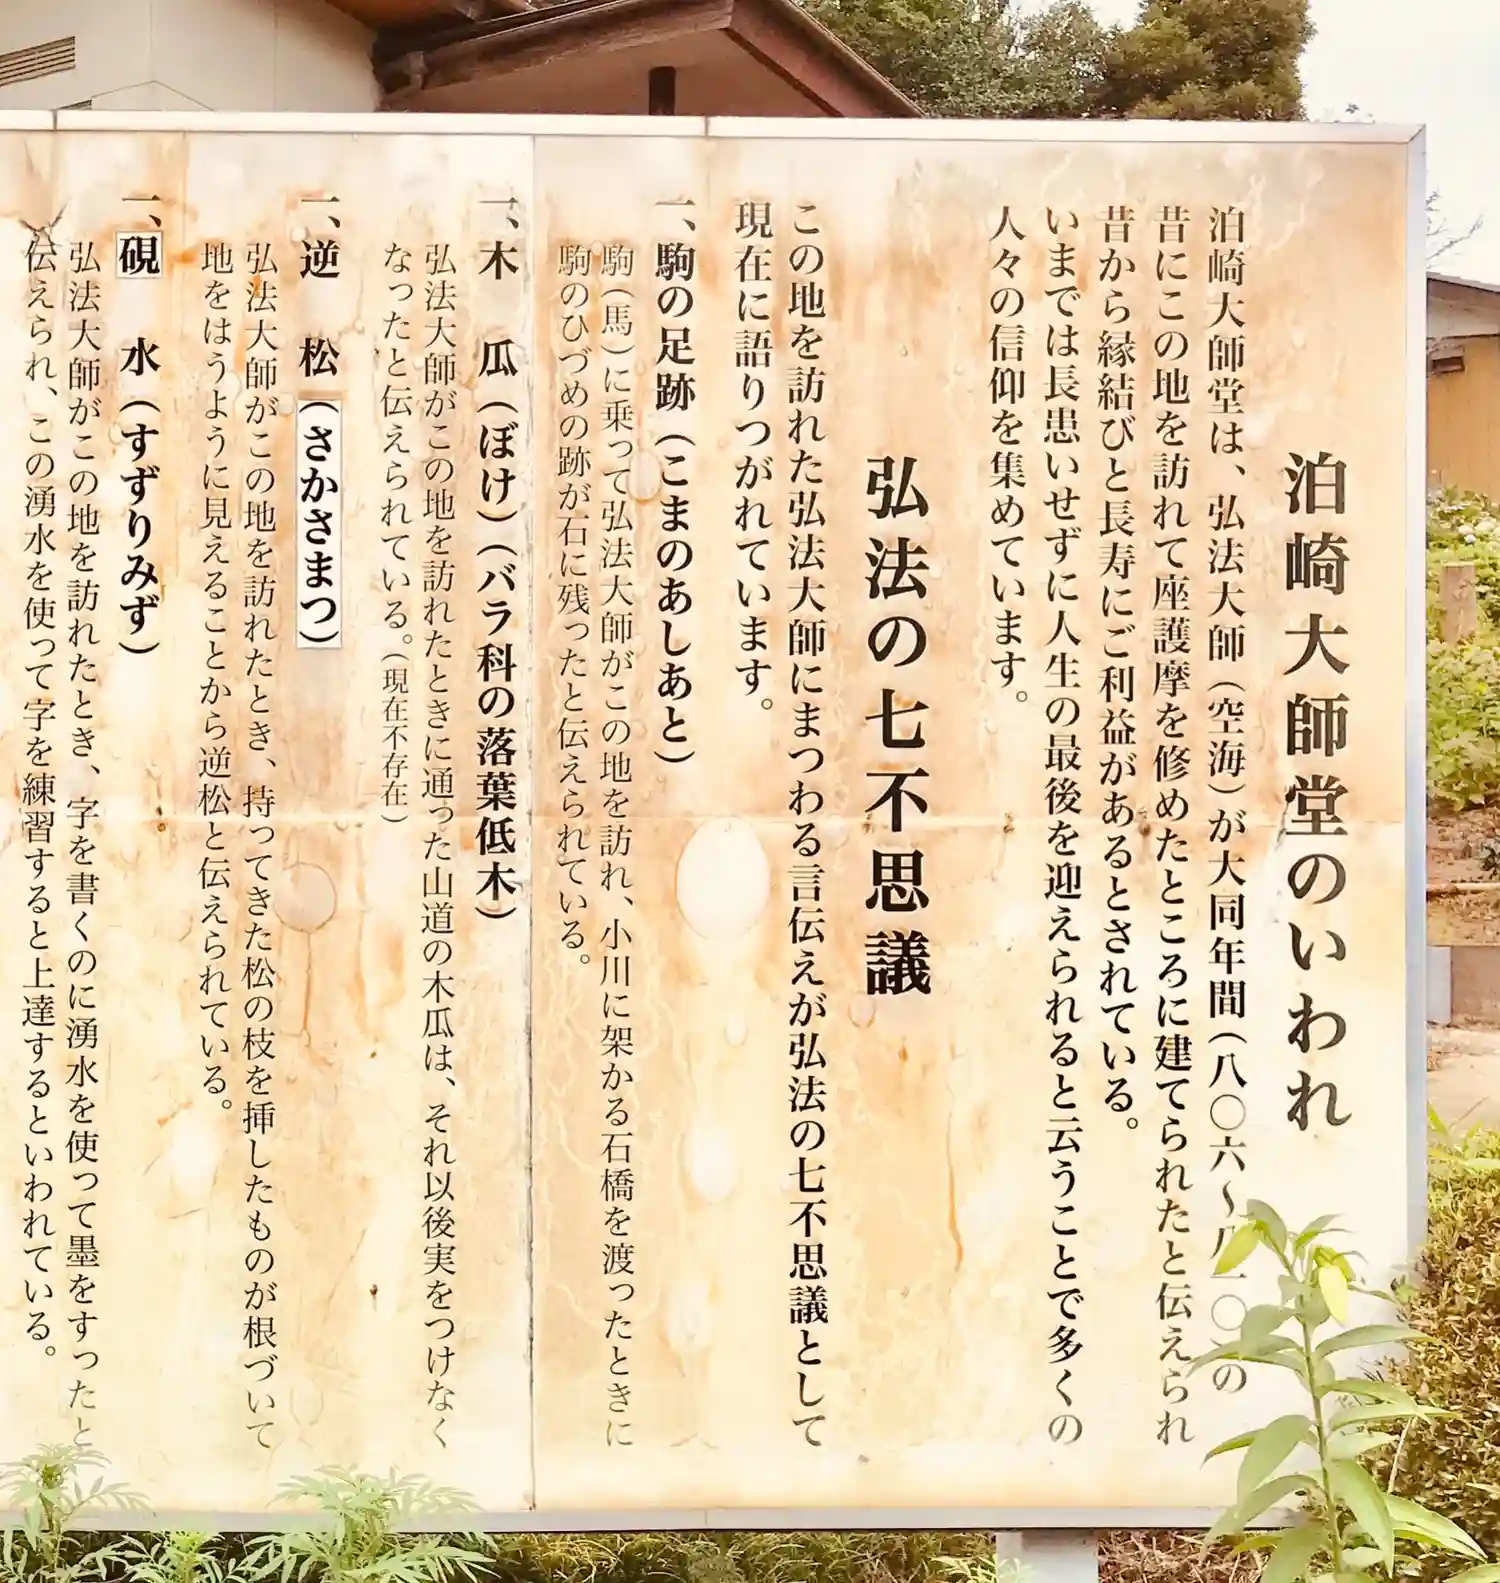 泊崎大師堂のいわれ
泊崎大師堂は、弘法大師（空海）が大同年間（八〇六〜八一〇）の
昔にこの地を訪れて座護摩を修めたところに建てられたと伝えられ
昔から縁結びと長寿にご利益があるとされている。
いまでは長患いせずに人生の最後を迎えられると云うことで多くの
人々の信仰を集めています。
弘法の七不思議
この地を訪れた弘法大師にまつわる言伝えが弘法の七不思議として
現在に語りつがれています。
一、駒の足跡（こまのあしあと）
駒（馬）に乗って弘法大師がこの地を訪れ、小川に架かる石橋を渡ったときに
駒のひづめの跡が石に残ったと伝えられている。
一、木　瓜（ぼけ）（バラ科の落葉低木）
弘法大師がこの地を訪れたときに通った山道の木瓜は、それ以後実をつけなく
なったと伝えられている。（現在不存在）
一、逆　松（さかさまつ）
弘法大師がこの地を訪れたとき、持ってきた松の枝を挿したものが根づいて
地をはうように見えることから逆松と伝えられている。
一、硯　水（すずりみず）
弘法大師がこの地を訪れたとき、字を書くのに湧水を使って墨をすったと
伝えられ、この湧水を使って字を練習すると上達するといわれている。